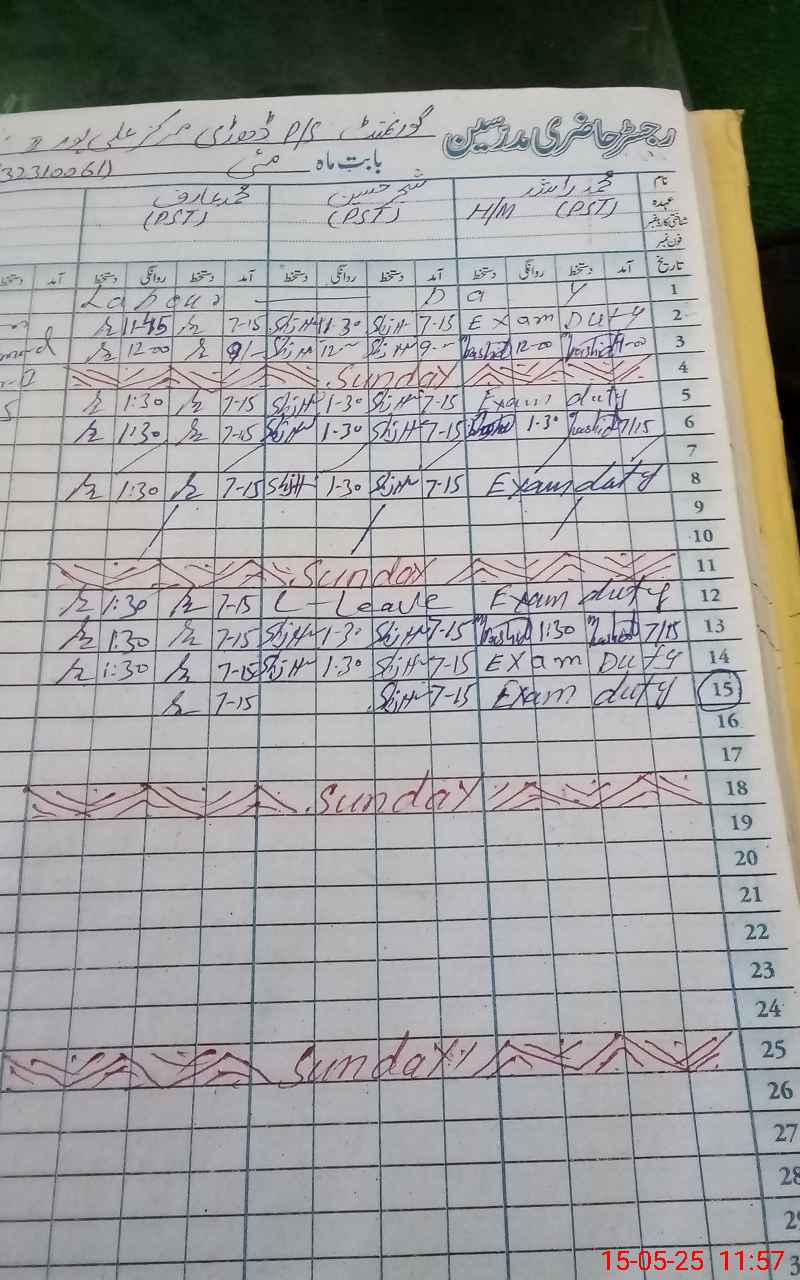 رجسٹر حاضری مدرسین گورنمنٹ P/S ڈھوڑی مرکز علی پور
بابت ماہ مئی 32310061)
نام محمد راشد شجر حسین محمد عارف
عہدہ H/M (PST) (PST) (PST)
شناختی کارڈ نمبر
فون نمبر
تاریخ آمد دستخط روانگی دستخط آمد دستخط روانگی دستخط آمد دستخط روانگی دستخط آمد دستخط
Labour Day 1
11-45 7-15 11-30 7-15 Exam Duty 2
12-00 9/- 12- 9- Rashid 12-00 Rashid 9-00 3
Sunday 4
1:30 7-15 1-30 7-15 Exam duty 5
1:30 7-15 1-30 7-15 Rashid 1-30 Rashid 7/15 6
7
1:30 7-15 1-30 7-15 Exam duty 8
9
10
Sunday 11
1:30 7-15 L-Leave Exam duty 12
1:30 7-15 1-30 7-15 Rashid 1:30 Rashid 7/15 13
1:30 7-15 1-30 7-15 Exam Duty 14
7-15 7-15 Exam duty 15
16
17
Sunday 18
19
20
21
22
23
24
Sunday 25
26
27
28
15-05-25 11:57